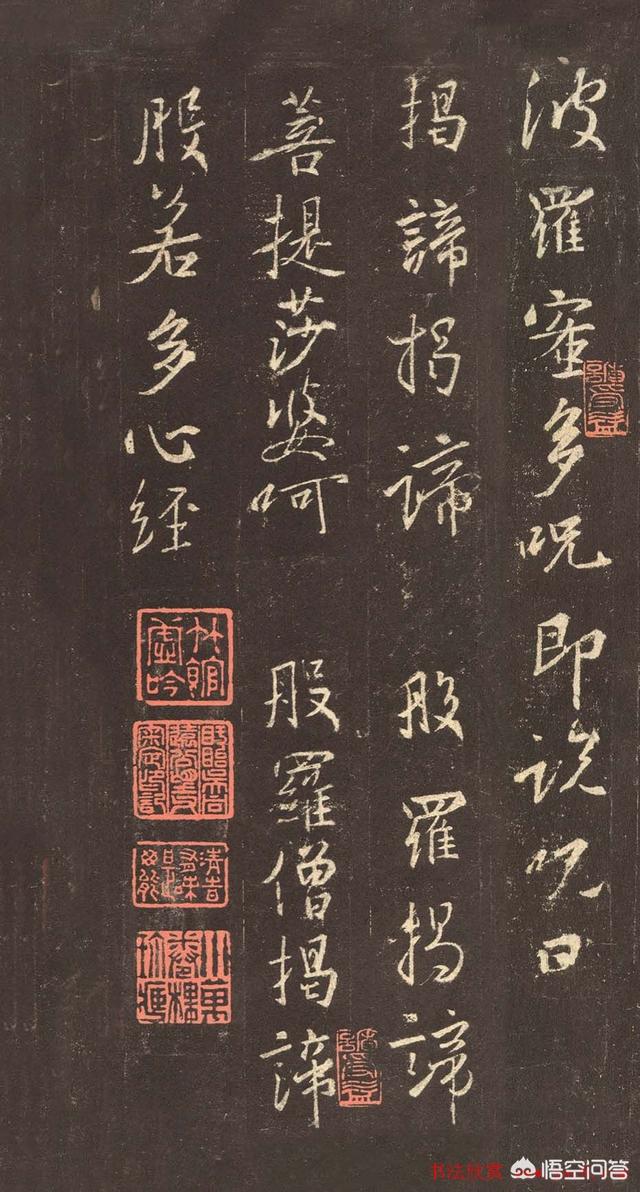 波羅蜜多呪即說呪曰
揭諦揭諦 般羅揭諦
菩提莎婆呵 般羅僧揭諦
般若多心經
书法欣赏
悟空问答